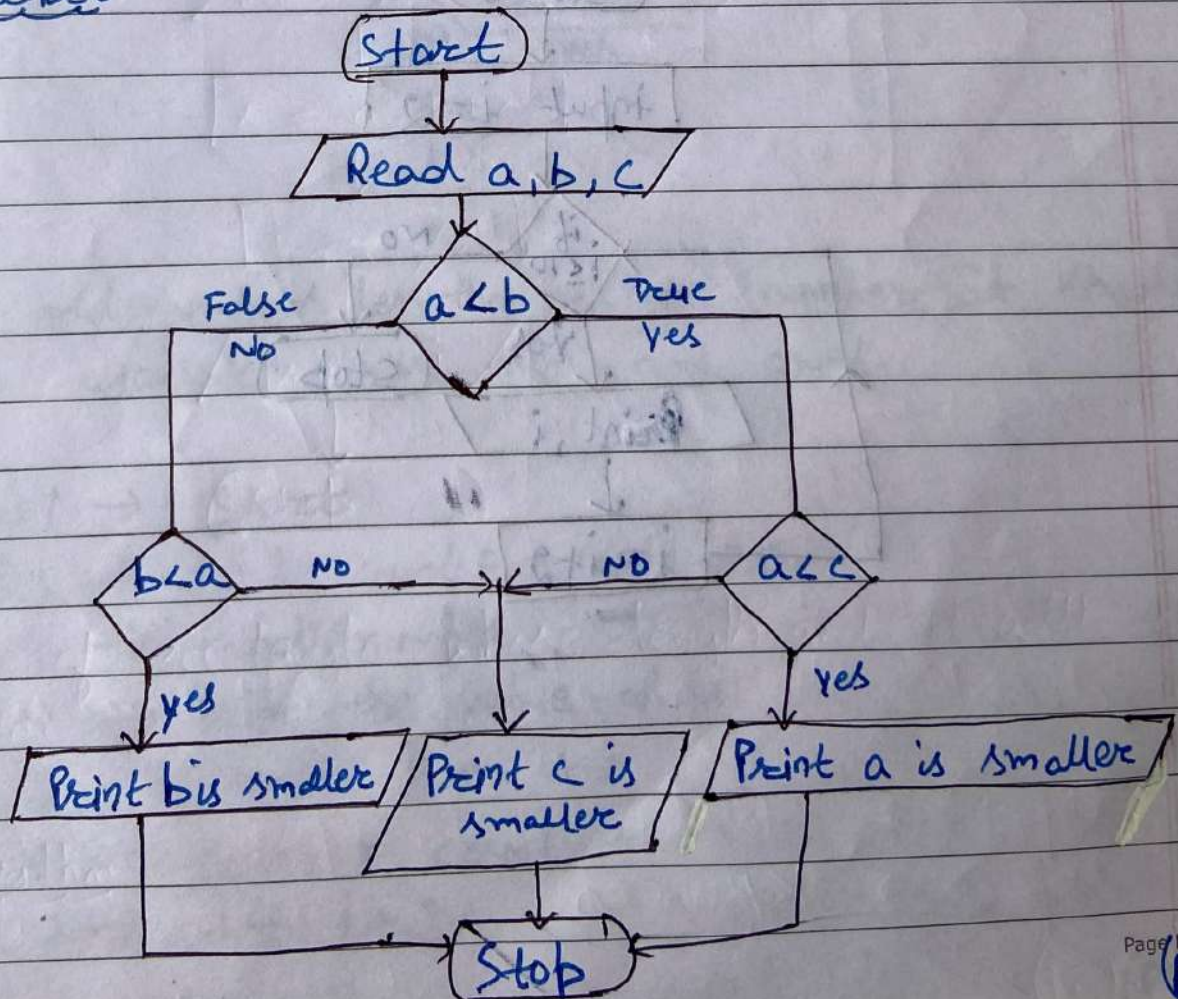 Start
Read a, b, c
a < b
False
No
True
Yes
b < a
No
No
a < c
yes
yes
Print b is smaller
Print c is
smaller
Print a is smaller
Stop
Page